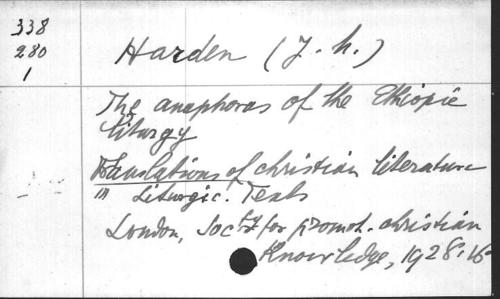 338
280
1
Harden (J. h.)
The anaphoras of the Ethiopic
liturgy
Translations of christian literature
III Liturgic. Texts
London, Soc^ty for promot. christian
Knowledge, 1928. 16°